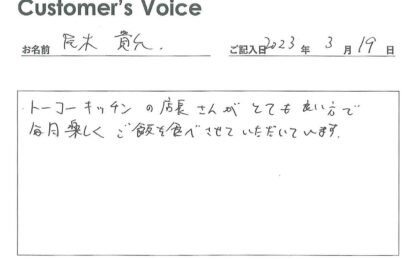 Customer's Voice
お名前 荒木 貴允 ご記入日 2023 年 3 月 19 日
トーコーキッチンの店長さんがとても良い方で
毎月楽しくご飯を食べさせていただいています。